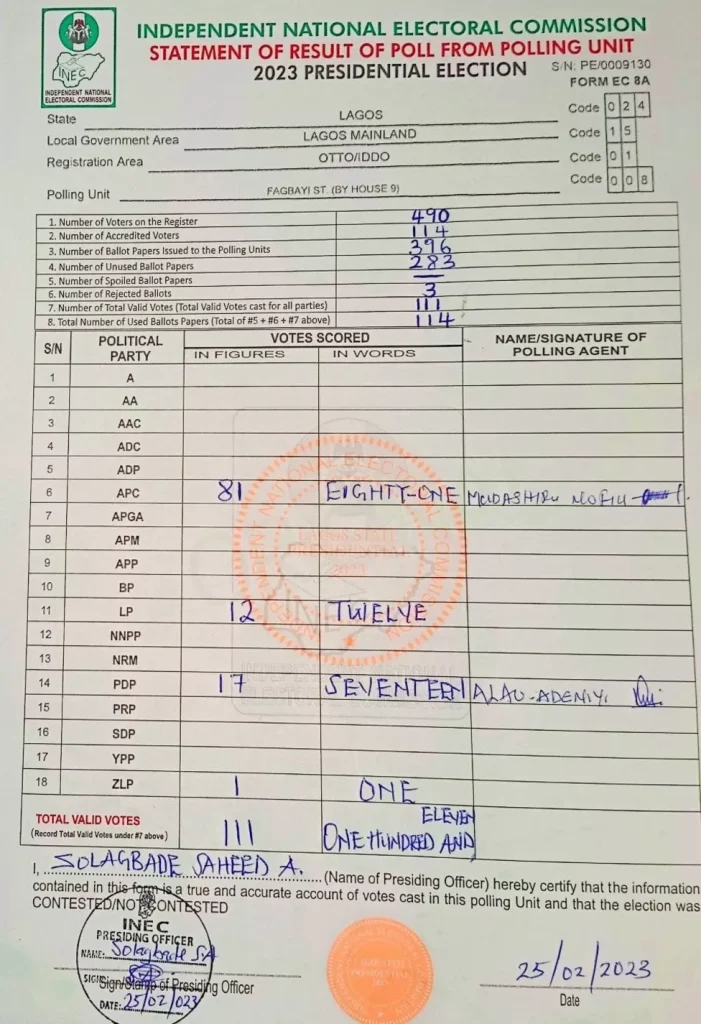 INDEPENDENT NATIONAL ELECTORAL COMMISSION
STATEMENT OF RESULT OF POLL FROM POLLING UNIT
2023 PRESIDENTIAL ELECTION
S/N: PE/0009130
FORM EC 8A
INEC
INDEPENDENT NATIONAL
ELECTORAL COMMISSION
State LAGOS Code 0 2 4
Local Government Area LAGOS MAINLAND Code 1 5
Registration Area OTTO/IDDO Code 0 1
Polling Unit FAGBAYI ST. (BY HOUSE 9) Code 0 0 8
1. Number of Voters on the Register 490
2. Number of Accredited Voters 114
3. Number of Ballot Papers Issued to the Polling Units 396
4. Number of Unused Ballot Papers 283
5. Number of Spoiled Ballot Papers —
6. Number of Rejected Ballots 3
7. Number of Total Valid Votes (Total Valid Votes cast for all parties) 111
8. Total Number of Used Ballots Papers (Total of #5 + #6 + #7 above) 114
S/N POLITICAL PARTY VOTES SCORED NAME/SIGNATURE OF POLLING AGENT
IN FIGURES IN WORDS
1 A
2 AA
3 AAC
4 ADC
5 ADP
6 APC 81 EIGHTY-ONE MUDASHIRU NOFIU
7 APGA
8 APM
9 APP
10 BP
11 LP 12 TWELVE
12 NNPP
13 NRM
14 PDP 17 SEVENTEEN ALAO-ADENIYI
15 PRP
16 SDP
17 YPP
18 ZLP 1 ONE
TOTAL VALID VOTES 111 ONE HUNDRED AND ELEVEN
(Record Total Valid Votes under #7 above)
I, SOLAGBADE SAHEED A. (Name of Presiding Officer) hereby certify that the information
contained in this form is a true and accurate account of votes cast in this polling Unit and that the election was
CONTESTED/NOT CONTESTED
INEC
PRESIDING OFFICER
NAME: Solagbade S.A
SIGN:
Sign/Stamp of Presiding Officer
DATE: 25/02/023
25/02/2023
Date